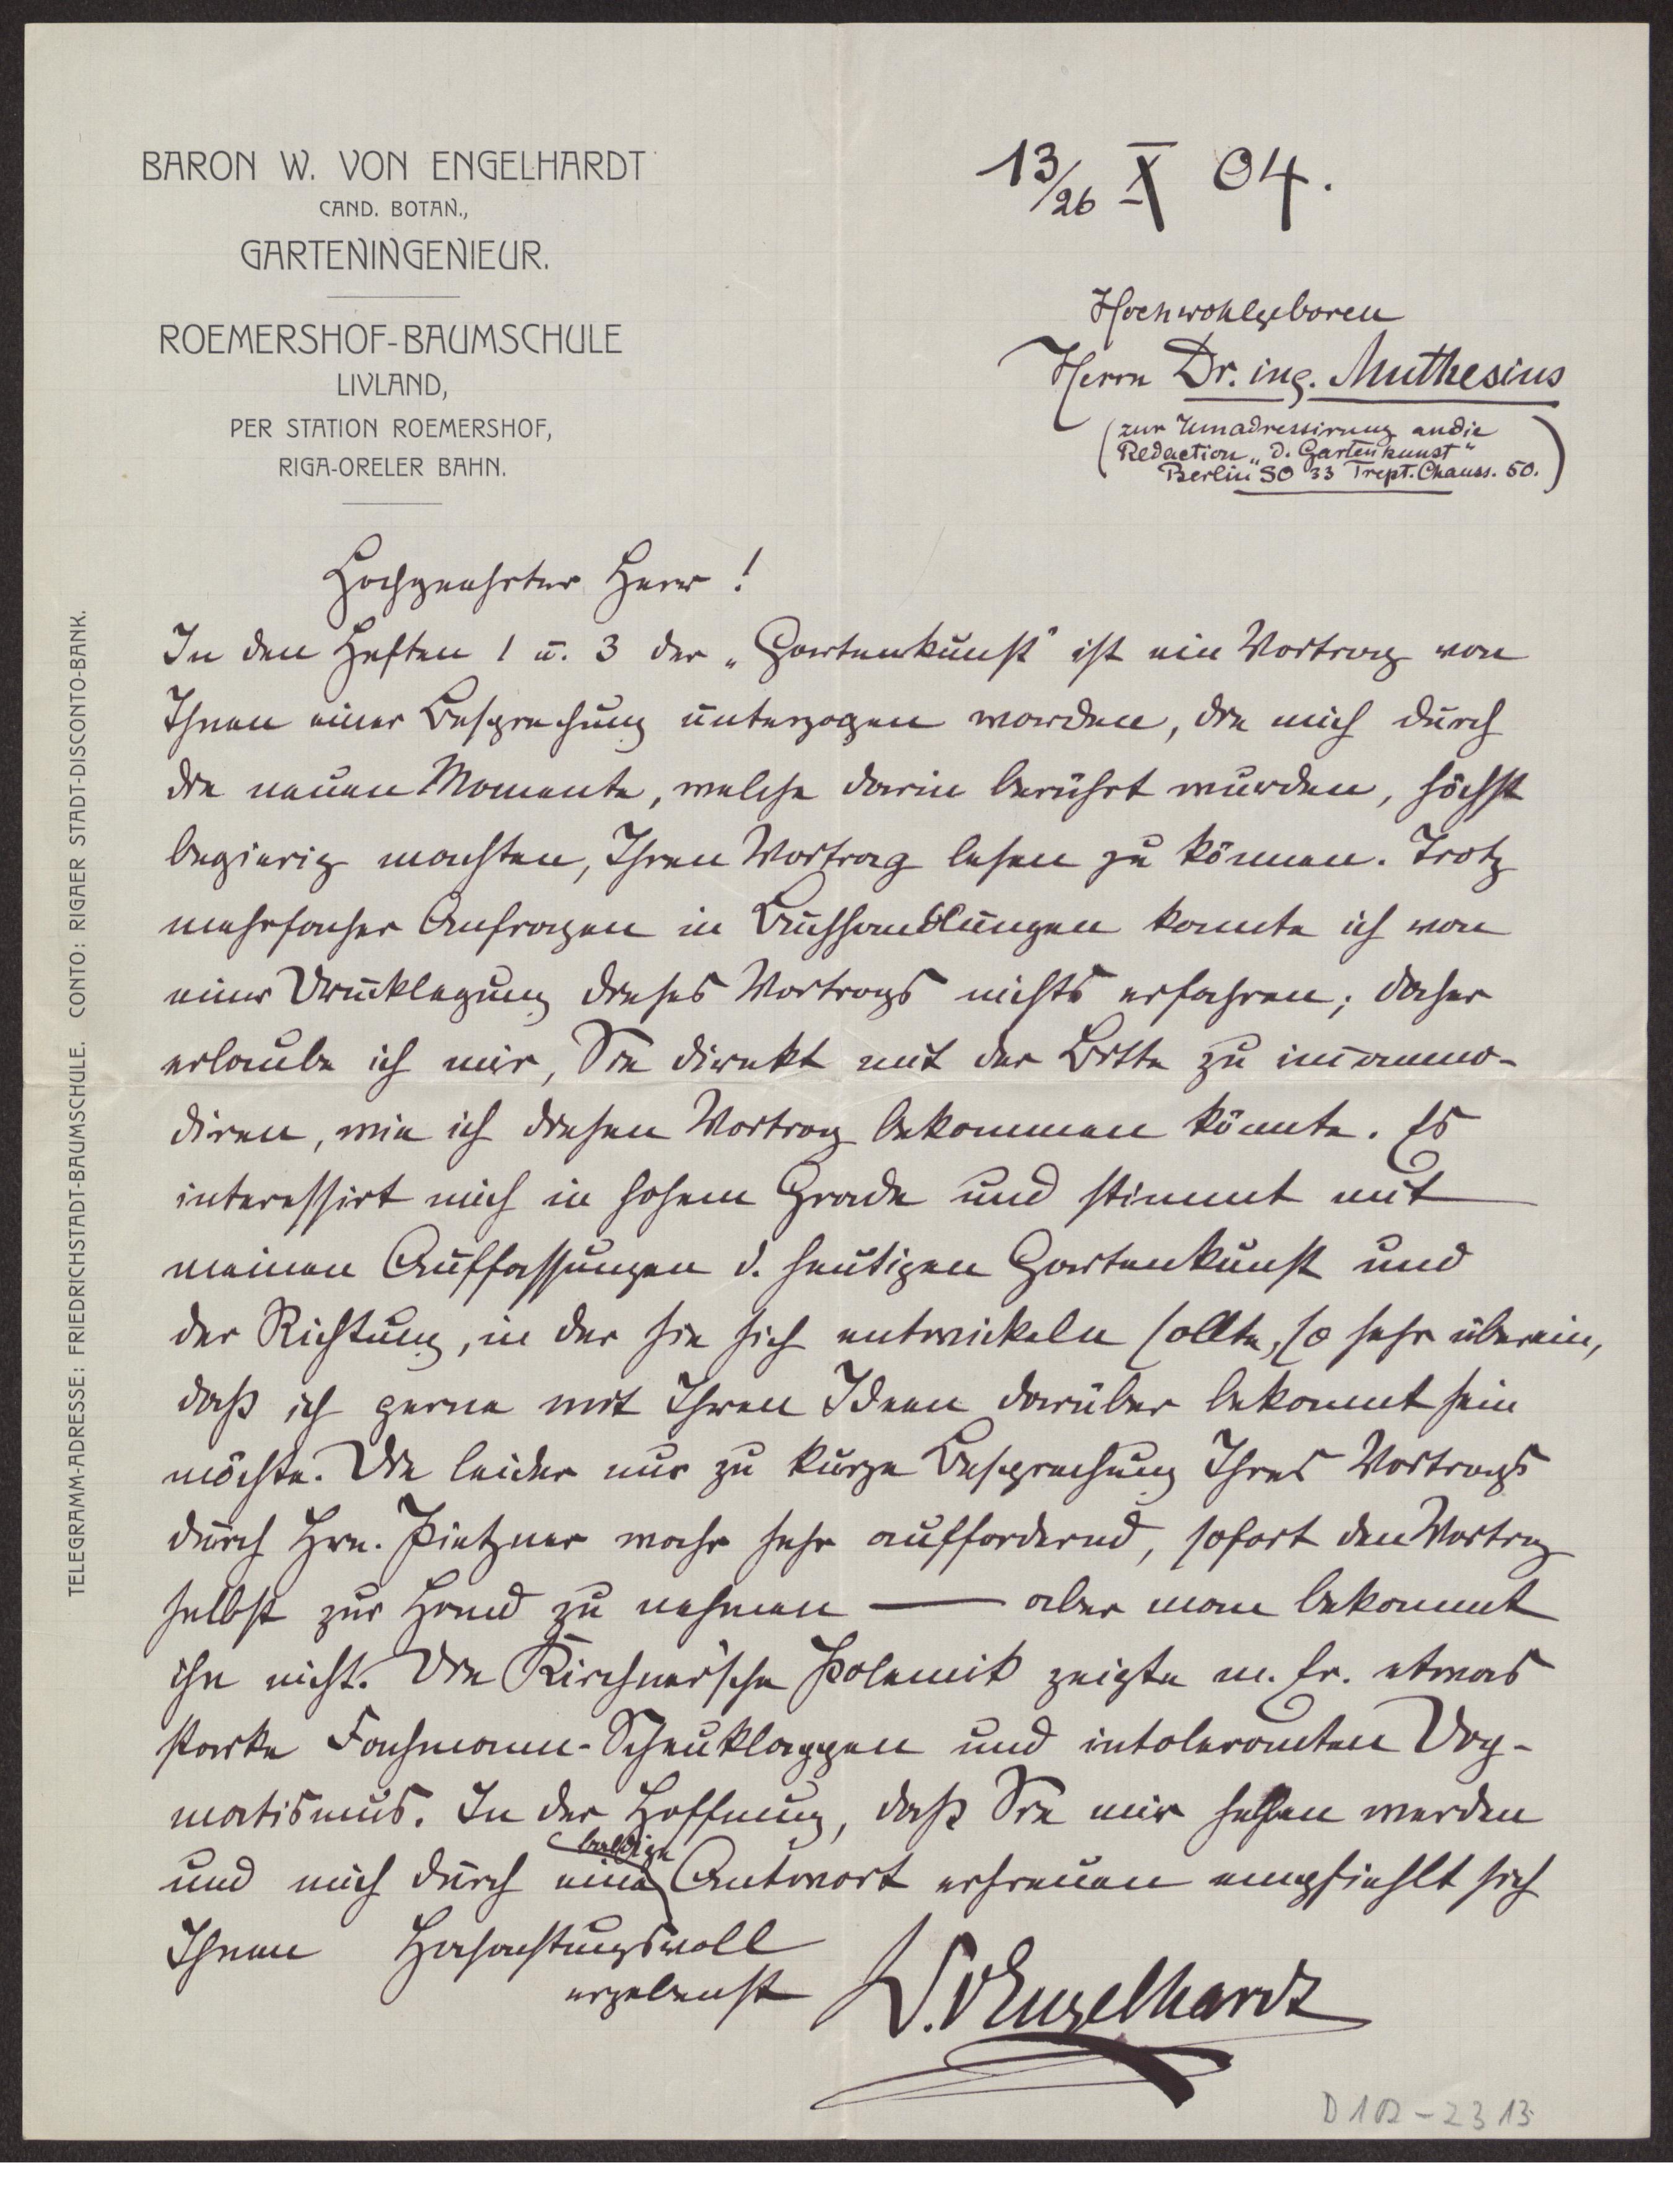 BARON W. VON ENGELHARDT
CAND. BOTAN.,
GARTENINGENIEUR.
ROEMERSHOF-BAUMSCHULE
LIVLAND,
PER STATION ROEMERSHOF,
RIGA-ORELER BAHN.
TELEGRAMM-ADRESSE: FRIEDRICHSTADT-BAUMSCHULE. CONTO: RIGAER STADT-DISCONTO-BANK.
13/26 X 04.
Hochwohlgeboren
Herrn Dr. ing. Muthesius
(zur Umadressirung an die
Redaction „d. Gartenkunst"
Berlin SO 33 Trept. Chauss. 50.)
Hochgeehrter Herr!
In den Heften 1 u. 3 der „Gartenkunst" ist ein Vortrag von
Ihnen einer Besprechung unterzogen worden, die mich durch
die neuen Momente, welche darin berührt wurden, höchst
begierig machten, Ihren Vortrag lesen zu können. Trotz
mehrfacher Anfragen in Buchhandlungen konnte ich von
einer Drucklegung dieses Vortrags nichts erfahren; daher
erlaube ich mir, Sie direkt mit der Bitte zu incommo-
diren, wie ich diesen Vortrag bekommen könnte. Es
interessirt mich in hohem Grade und stimmt mit
meinen Auffassungen d. heutigen Gartenkunst und
der Richtung, in der sie sich entwickeln sollte, so sehr überein,
daß ich gerne mit Ihren Ideen darüber bekannt sein
möchte. Die leider nur zu kurze Besprechung Ihres Vortrags
durch Hrn. Pietzner wahr sehr auffordernd, sofort den Vortrag
selbst zur Hand zu nehmen — aber man bekommt
ihn nicht. Die Kirchner'sche Polemik zeigte m. Er. etwas
starke Fachmann-Scheuklappen und intoleranten Dog-
matismus. In der Hoffnung, daß Sie mir helfen werden
und mich durch eine baldige Antwort erfreuen empfiehlt sich
Ihnen Hochachtungsvoll
ergebenst W. v Engelhardt
D 102-2313